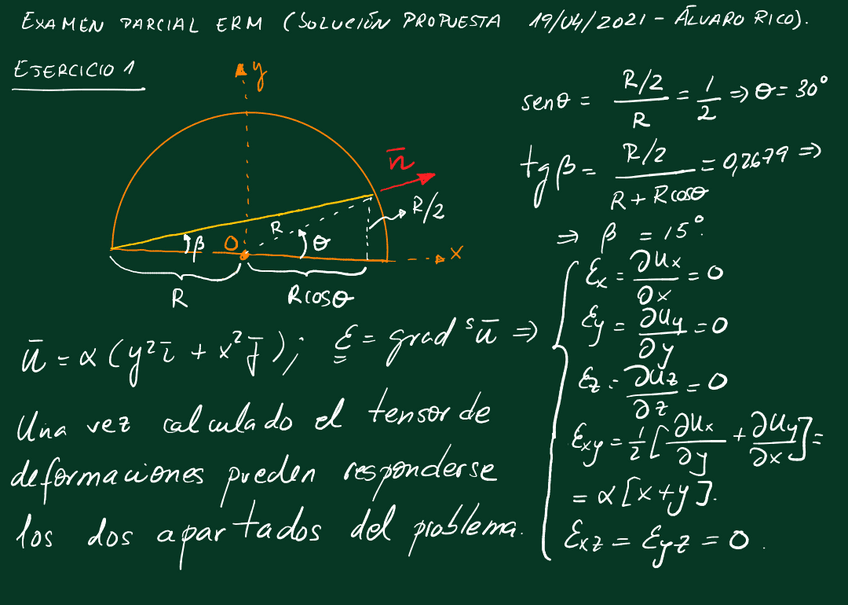 EXAMEN PARCIAL ERM (SOLUCIÓN PROPUESTA 19/04/2021 - ÁLVARO RICO).
EJERCICIO 1
y
n̄
R/2
R
β
O
θ
x
R
Rcosθ
senθ = (R/2)/R = 1/2 ⇒ θ = 30°
tgβ = (R/2)/(R + Rcosθ) = 0,2679 ⇒
⇒ β = 15°.
ū = α(y² ī + x² j̄); ε = grad ˢū ⇒
εx = ∂ux/∂x = 0
εy = ∂uy/∂y = 0
εz = ∂uz/∂z = 0
εxy = 1/2 [∂ux/∂y + ∂uy/∂x] =
= α[x+y].
εxz = εyz = 0.
Una vez calculado el tensor de
deformaciones pueden responderse
los dos apartados del problema.